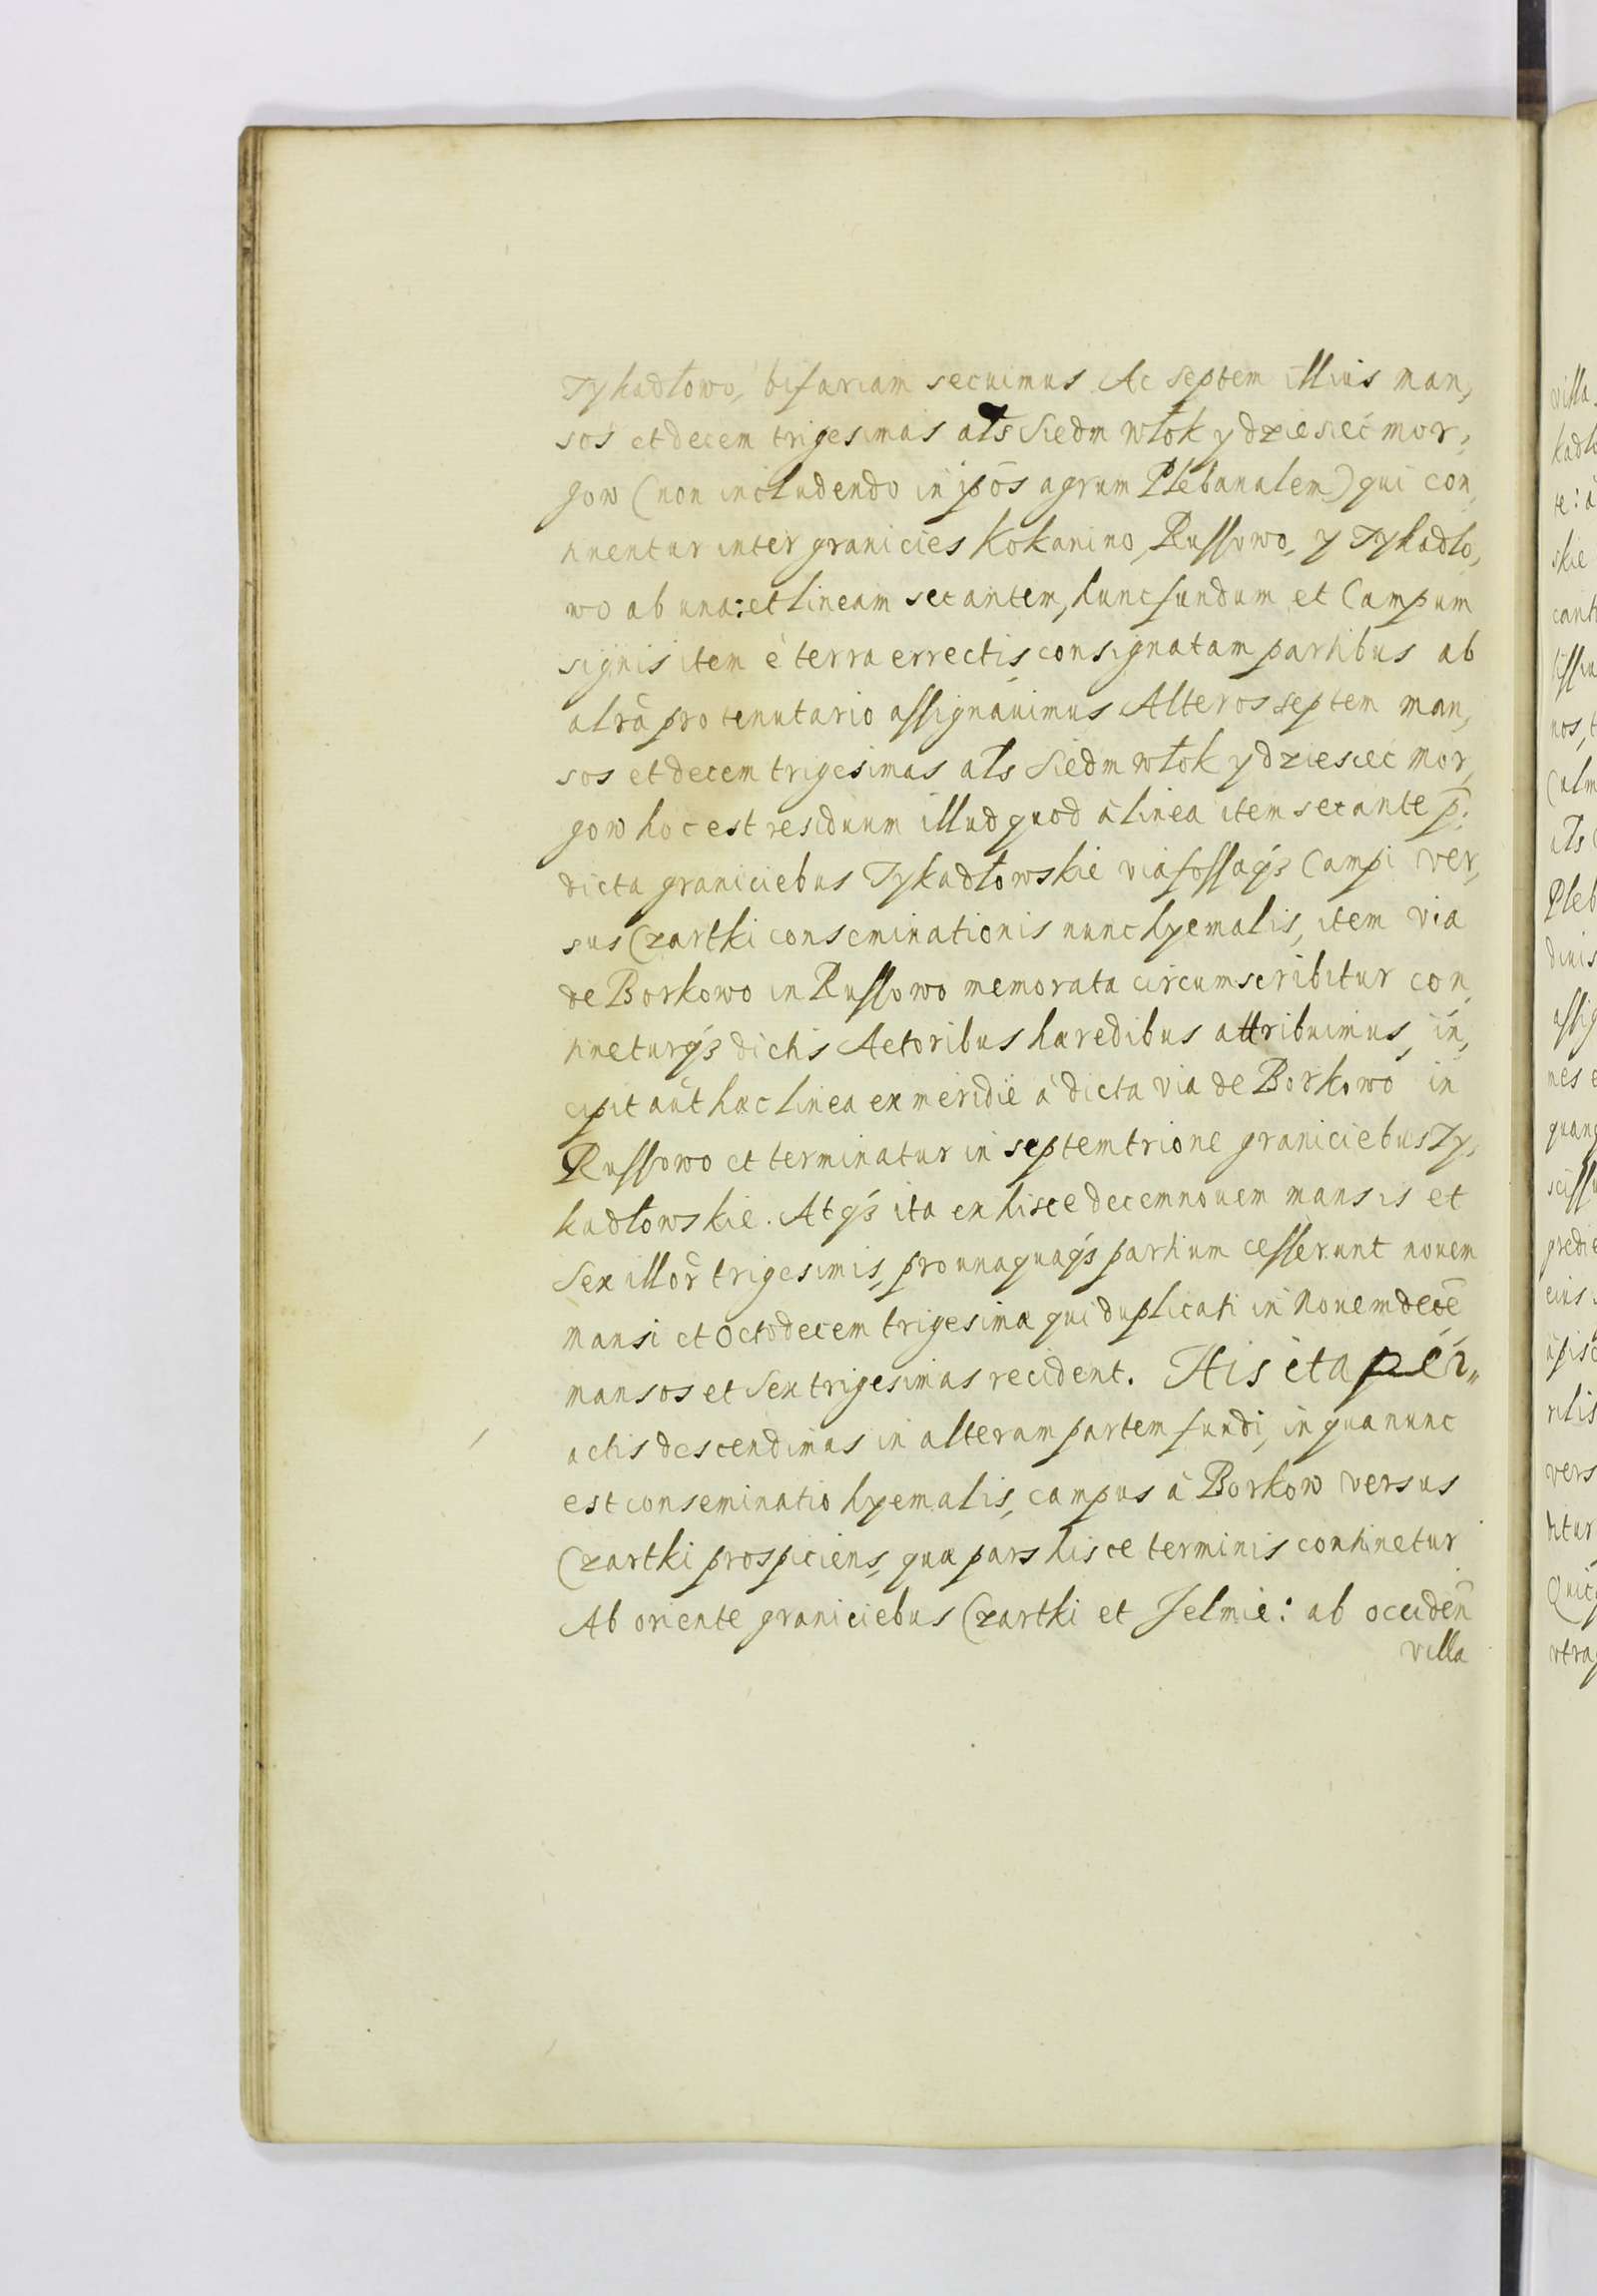 Tykadłowo, bifariam secuimus Ac septem illius man,
sos et decem trigesimas als Siedm włok y dziesieć mor,
gow (non includendo in ipos agrum Plebanalem) qui con,
tinentur inter granicies Kokanino, Russowo, y Tykadło,
wo ab una: et lineam secantem, hunc fundum et Campum
signis item è terra errectis consignatam partibus ab
altrà pro tenutario assignauimus Alteros septem man,
sos et decem trigesimas als Siedm włok y dziesieć mor,
gow hoc est residuum illud quod à linea item secante p:
dicta graniciebus Tykadłowskie via fossaq3 Campi ver,
sus Czartki conseminationis nunc hyemalis, item via
de Borkowo in Russowo memorata circumscribitur con,
tineturq3 dictis Actoribus hæredibus attribuimus, in,
cipit aut hæc linea ex meridie à dicta via de Borkowo in
Russowo et terminatur in septemtrione graniciebus Ty,
kadłowskie. Atq3 ita ex hisce decemnouem mansis et
Sex illor trigesimis, pro unaquaq3 partium cesserunt nouem
mansi et Octodecem trigesimæ qui duplicati in Nouemdecē
mansos et Sex trigesimas recident. His ita per„
actis descendimus in alteram partem fundi, in qua nunc
est conseminatio hyemalis, campus à Borkow versus
Czartki prospiciens, quæ pars hisce terminis continetur
Ab oriente graniciebus Czartki et Jelmie: ab occiden̄
villa
villa